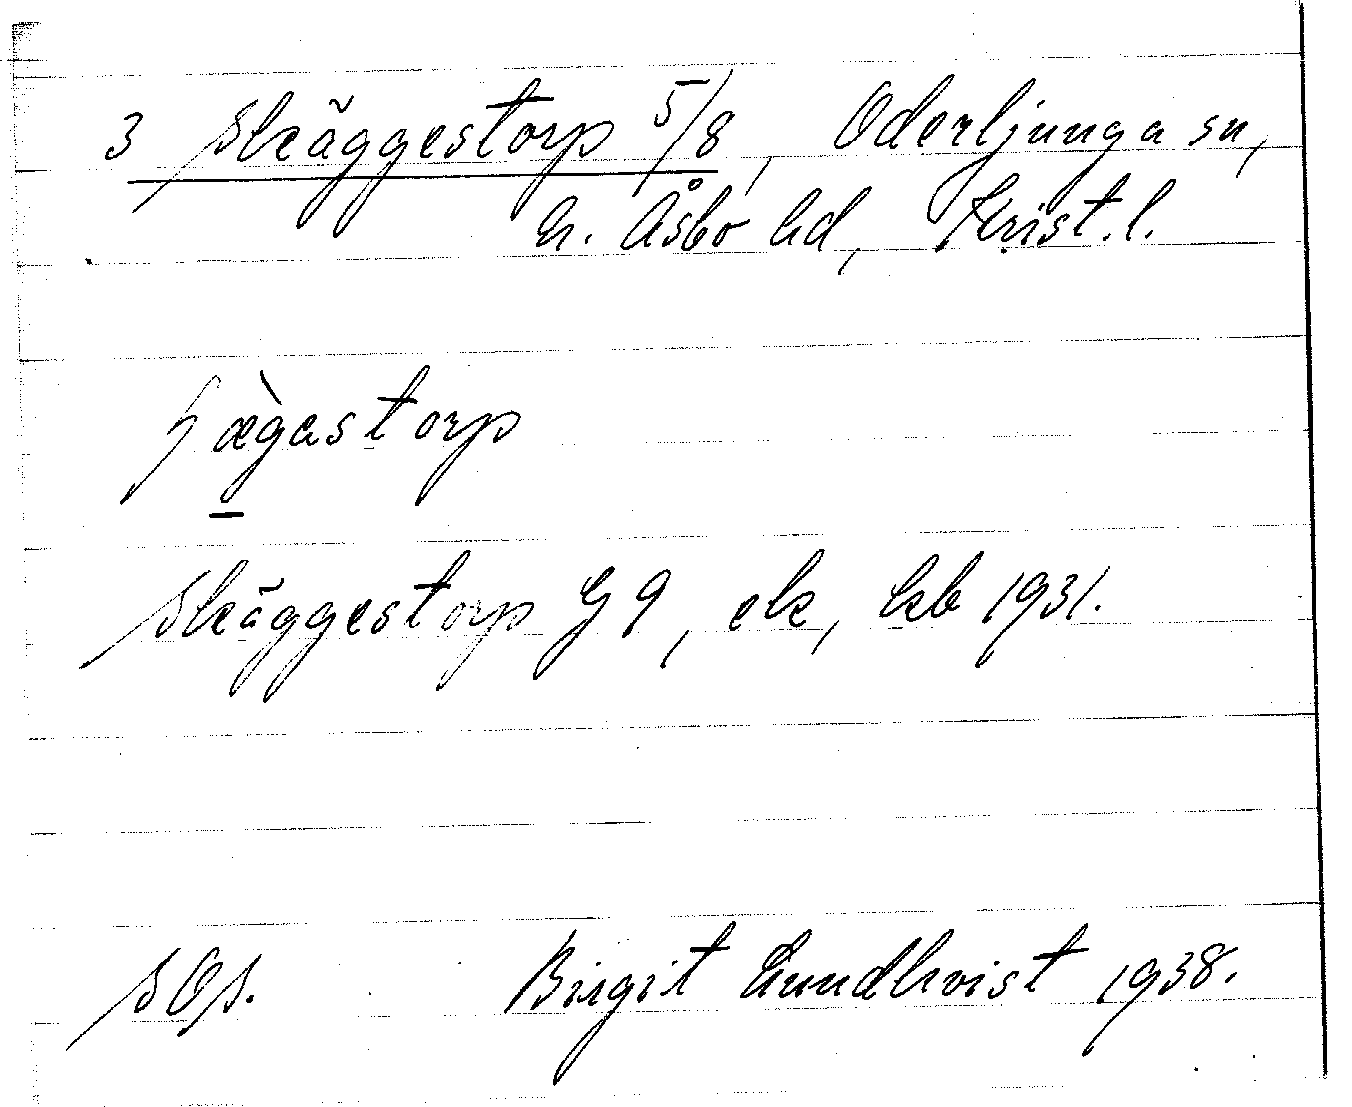 3 Skäggestorp 5/8, Oderljunga sn,
n. Åsbo hd, Krist. l.
ægastorp
Skäggestorp G 9, ek, kb 1931.
SOS. Birgit Lundkvist 1938.